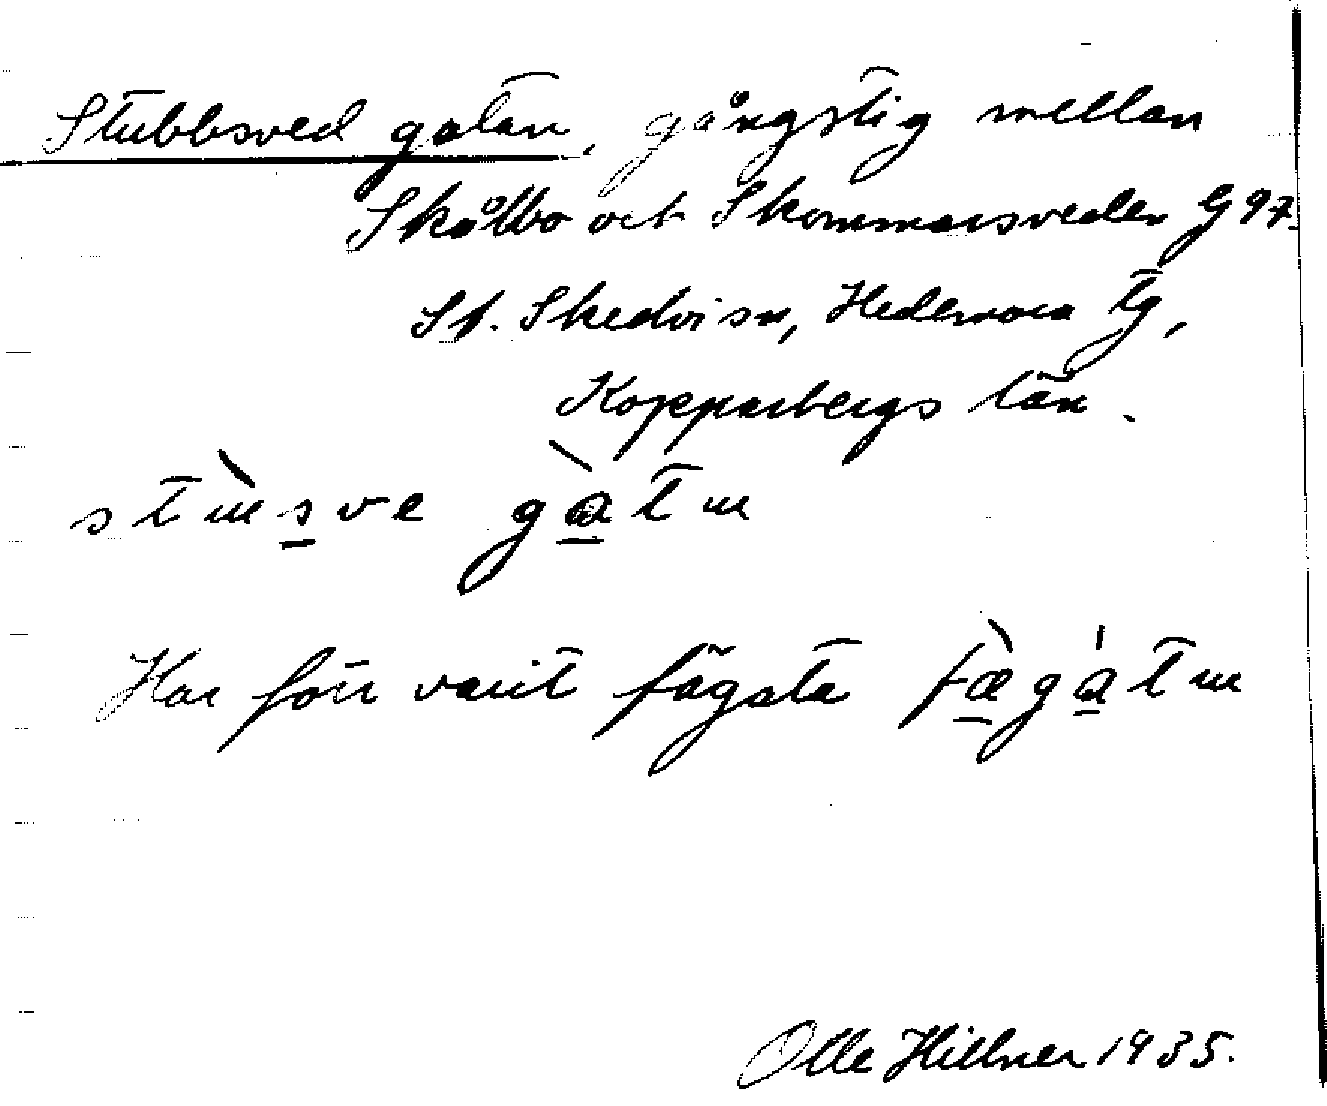 Stubbsved gatan, gångstig mellan
Skålbo och Skommarsveden G 97.
St. Skedvi sn, Hedemora tg,
Kopparbergs län.
gàtm
Har förr varit fägata
Olle Hillner 1935.